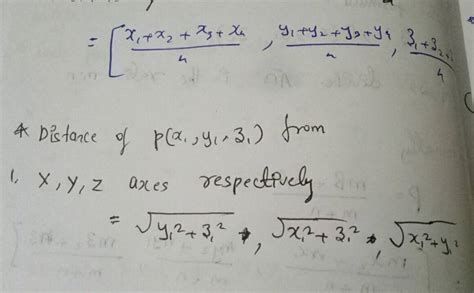 = [ x₁+x₂+x₃+x₄ / 4 , y₁+y₂+y₃+y₄ / 4 , z₁+z₂
* Distance of p(x₁, y₁, z₁) from
1, X, Y, Z axes respectively
= √y₁²+z₁² , √x₁²+z₁² , √x₁²+y₁²